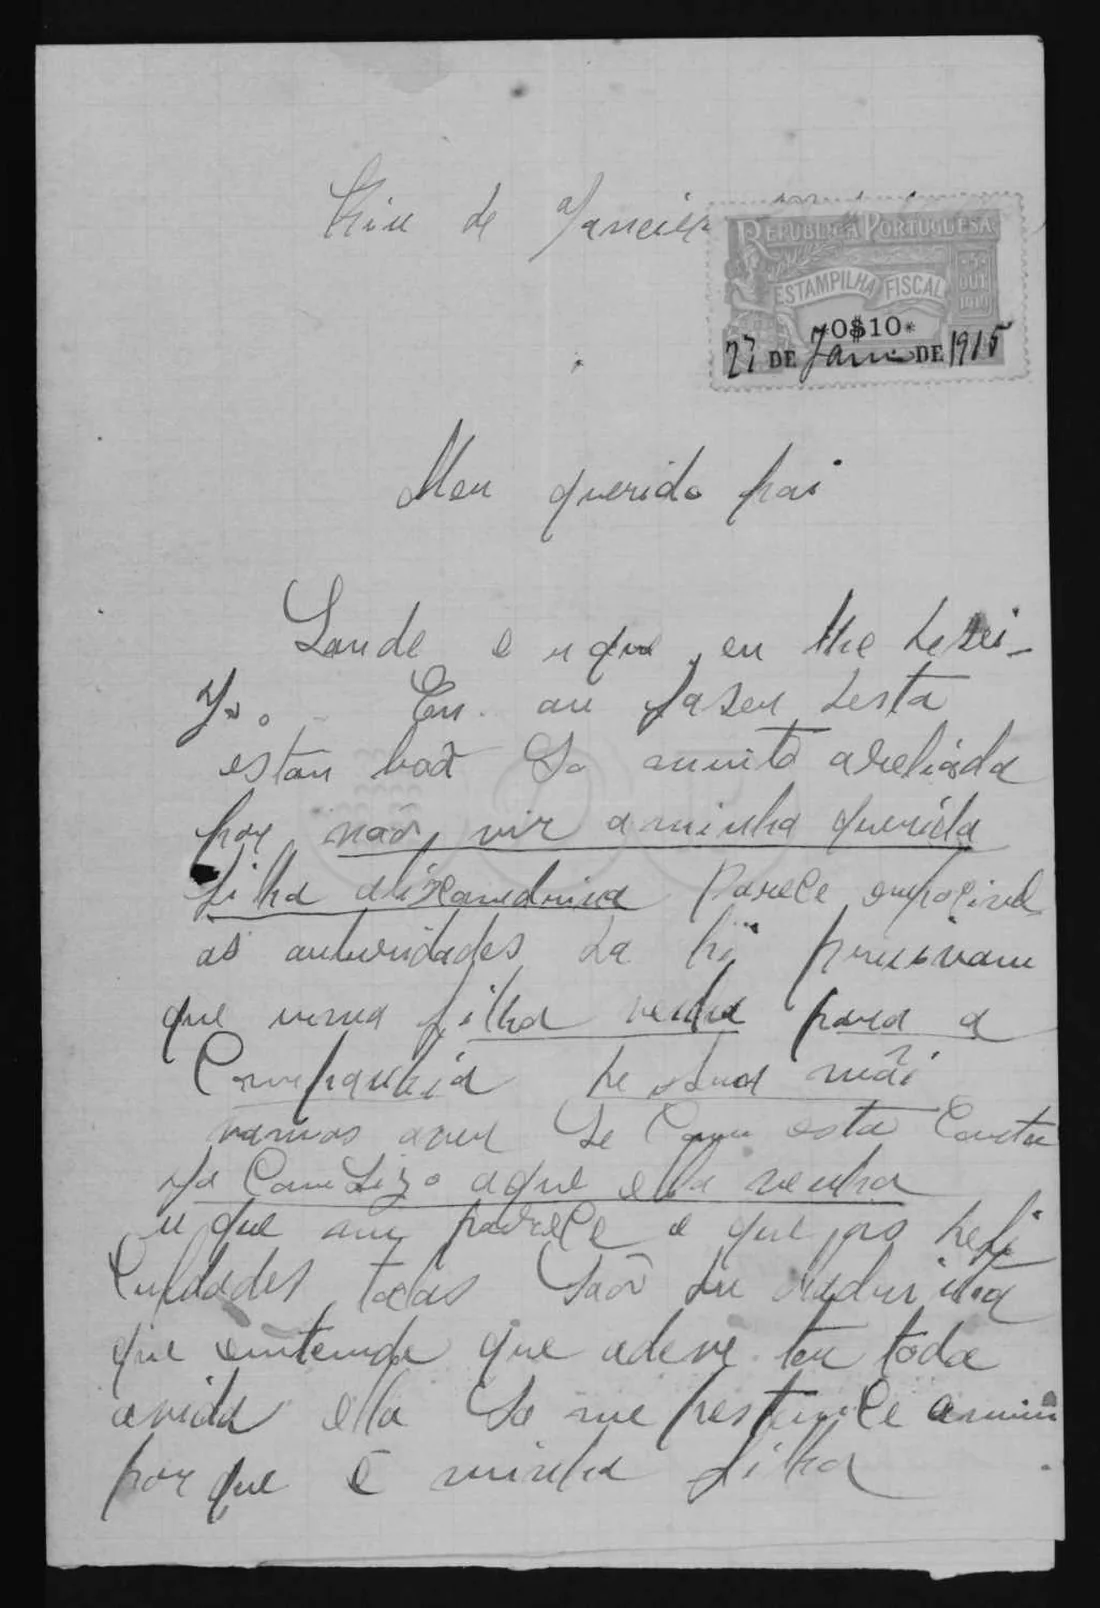 Rio de Janeiro
REPUBLICA PORTUGUESA
5 OUT 1910
ESTAMPILHA FISCAL
*0$10*
27 DE Jan DE 1915
Meu querido pai
Saude e u que eu lhe desei-
jo. Eu. au faser desta
estou boa So muito areliada
por não vir aminha querida
filha alixandrina parece empocivel
as auturidades da hi
que uma filha venha para a
Companhia de sua mãi
vamos aver se Com esta Carta
ja Comsigo aque ella venha
u que me parece e que as defi
Culdades todas são du Madrinha
que entende que adeve ter toda
avida ella So me pestence amim
porque é minha filha